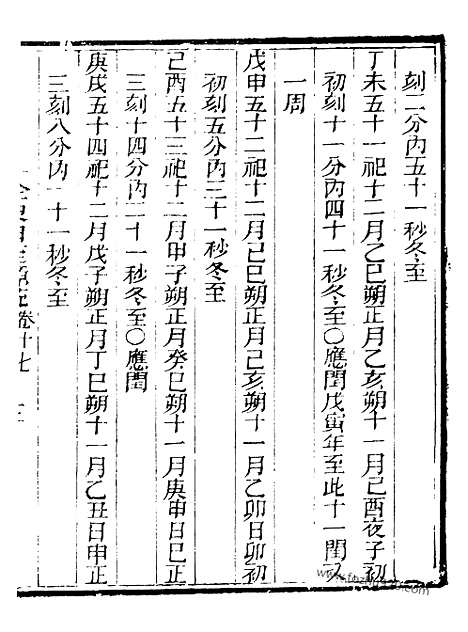 刻二分內五十一秒冬至
丁未五十一祀十二月乙巳朔正月乙亥朔十一月己酉夜子初
初刻十一分內四十一秒冬至○應閏戊寅年至此十一閏又
一周
戊申五十二祀十二月己巳朔正月己亥朔十一月乙卯日卯初
初刻五分內三十一秒冬至
己酉五十三祀十二月甲子朔正月癸巳朔十一月庚申日巳正
三刻十四分內二十一秒冬至○應閏
庚戌五十四祀十二月戊子朔正月丁巳朔十一月乙丑日申正
三刻八分內一十一秒冬至
卷十七